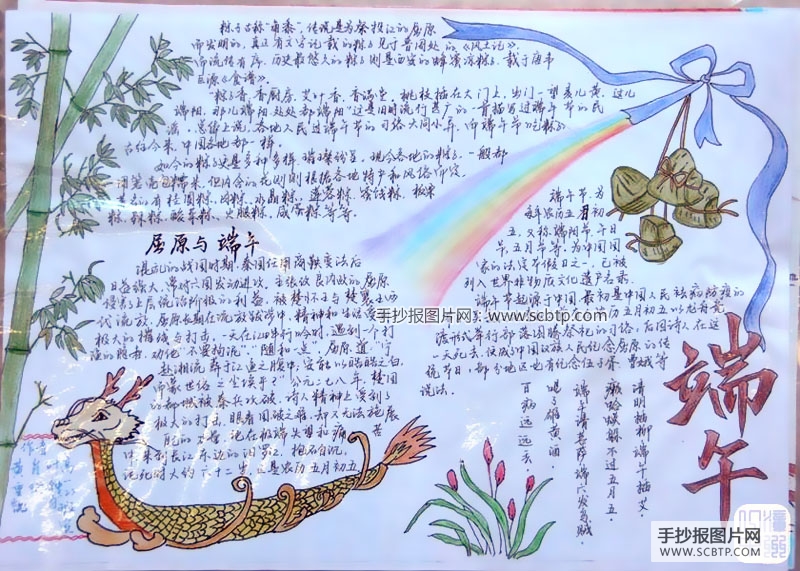 粽子古称"角黍",传说是为祭投江的屈原
而发明的,真正有文字记载的粽子见于晋周处的《风土记》;
而流传有序,历史最悠久的粽子则是西安的蜂蜜凉粽子,载于唐韦
巨源《食谱》。
"粽子香,香厨房。艾叶香,香满堂。桃枝插在大门上,出门一望麦儿黄。这儿
端阳,那儿端阳,处处都端阳"这是旧时流行甚广的一首描写过端午节的民
谣。总体上说,各地人民过端午节的习俗大同小异,而端午节吃粽子
古往今来,中国各地都一样。
如今的粽子更是多种多样,璀璨纷呈。现今各地的粽子,一般都
用箬壳包糯米,但内含的花则根据各地特产和风俗而定
的有桂圆粽、肉粽、水晶粽、莲蓉粽、蜜饯粽、板栗
粽、辣粽、酸菜粽、火腿粽、咸蛋粽等等。
屈原与端午
混乱的战国时期,秦国任用商鞅变法后
日益强大,常对六国发动进攻。主张改良内政的屈原
侵害上层统治阶级的利益,被楚怀王与楚襄王两
代流放。屈原长期在流放放逐中,精神和生活受
极大的摧残与打击。一天在江畔行吟时,遇到一个打
渔的隐者,劝他"不要拘泥""随和一点",屈原道"宁
赴湘流,葬于江鱼之腹中,安能以皓皓之白
而蒙世俗之尘埃乎?"公元二七八年,楚国
的都城被秦兵攻破,诗人精神上受到了
极大的打击,眼看国破之难,却又无法施展
他在极端失望和痛苦
中,来到长江东边的汨罗江,抱石自沉
沉死时大约六十二岁,这是农历五月初五
端午节,为
每年农历五月初
五,又称端阳节、午日
节、五月节等;为中国国
家的法定节假日之一,已被
列入世界非物质文化遗产名录。
端午节起源于中国,最初是中国人民祛病防疫的
历五月初五以龙舟竞
渡形式举行部落图腾祭祀的习俗;后因诗人在这
一天死去,便成了中国汉族人民纪念屈原的传
统节日,部分地区也有纪念伍子胥、曹娥等
说法。
清明插柳,端午插艾。
癞蛤蟆躲不过五月五。
喝了雄黄酒,
百病远远丢。
端午
手抄报图片网
www.scbtp.com
手抄报图片网
WWW.SCBTP.COM